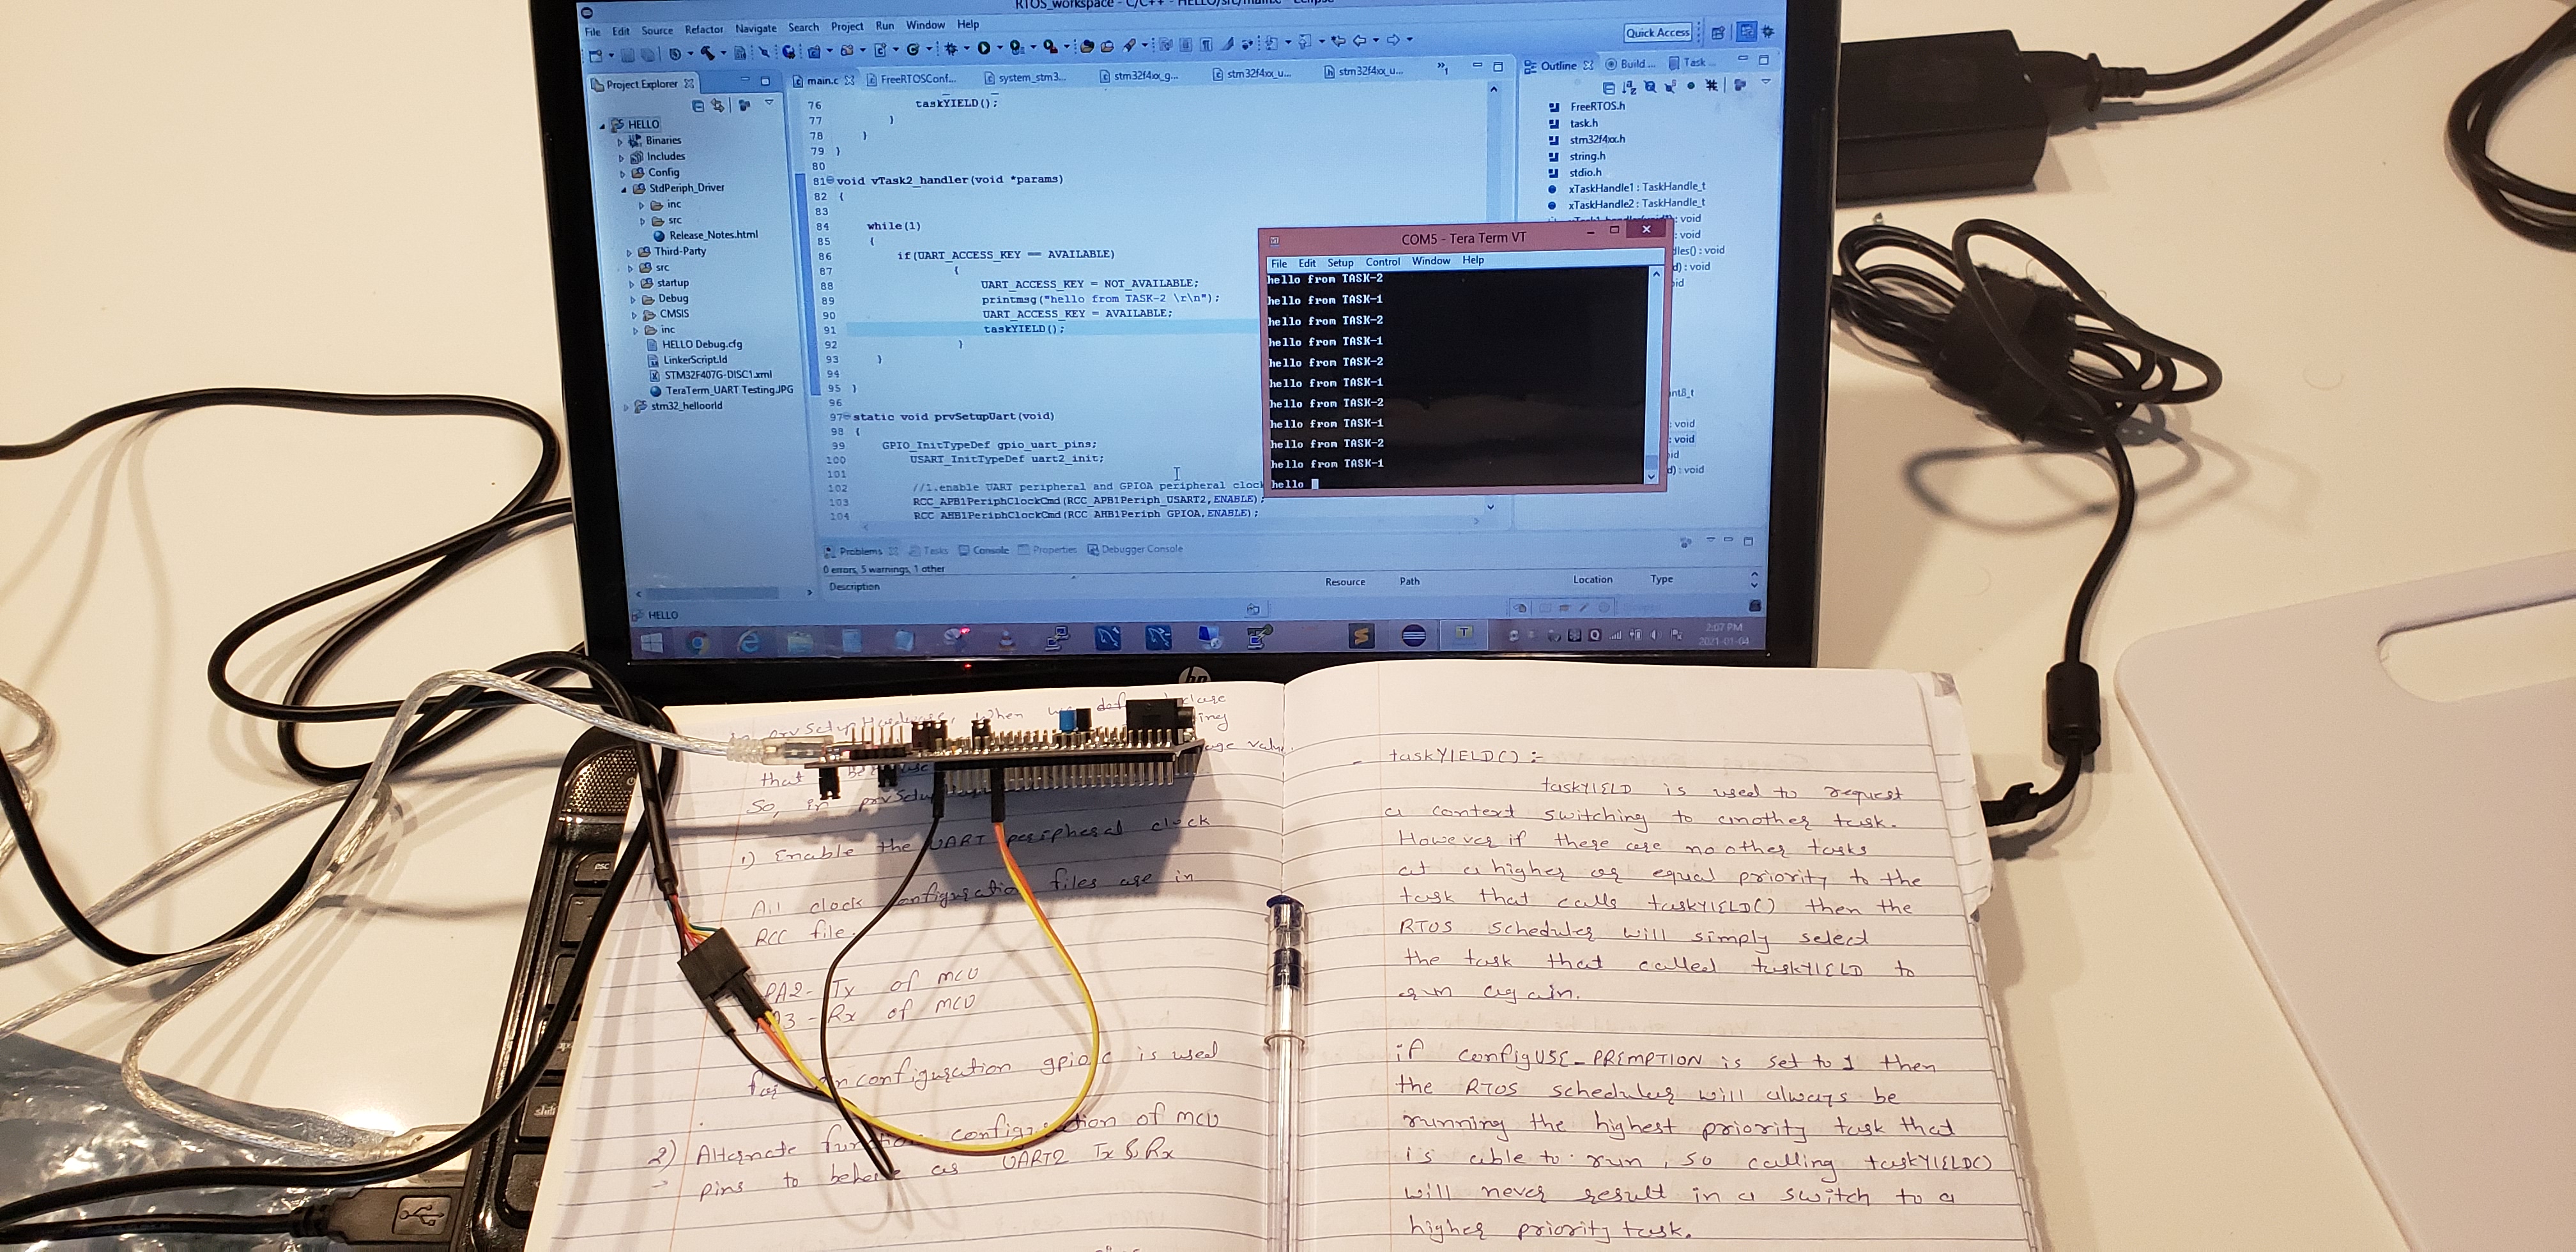 RTOS_workspace - C/C++ - HELLO/src/main.c - Eclipse
File Edit Source Refactor Navigate Search Project Run Window Help
Quick Access
Project Explorer
main.c
FreeRTOSConf...
system_stm3...
stm32f4xx_g...
stm32f4xx_u...
stm32f4xx_u...
Outline
Build ...
Task ...
HELLO
Binaries
Includes
Config
StdPeriph_Driver
inc
src
Release_Notes.html
Third-Party
src
startup
Debug
CMSIS
inc
HELLO Debug.cfg
LinkerScript.ld
STM32F407G-DISC1.xml
TeraTerm_UART Testing.JPG
stm32_helloorld
76 taskYIELD();
77 }
78 }
79 }
80
81 void vTask2_handler(void *params)
82 {
83
84 while(1)
85 {
86 if(UART_ACCESS_KEY == AVAILABLE)
87 {
88 UART_ACCESS_KEY = NOT_AVAILABLE;
89 printmsg("hello from TASK-2 \r\n");
90 UART_ACCESS_KEY = AVAILABLE;
91 taskYIELD();
92 }
93 }
94
95 }
96
97 static void prvSetupUart(void)
98 {
99 GPIO_InitTypeDef gpio_uart_pins;
100 USART_InitTypeDef uart2_init;
101
102 //1.enable UART peripheral and GPIOA peripheral clock
103 RCC_APB1PeriphClockCmd(RCC_APB1Periph_USART2,ENABLE);
104 RCC_AHB1PeriphClockCmd(RCC_AHB1Periph_GPIOA,ENABLE);
FreeRTOS.h
task.h
stm32f4xx.h
string.h
stdio.h
xTaskHandle1 : TaskHandle_t
xTaskHandle2 : TaskHandle_t
: void
: void
dles() : void
d) : void
: void
: void
d) : void
COM5 - Tera Term VT
File Edit Setup Control Window Help
hello from TASK-2
hello from TASK-1
hello from TASK-2
hello from TASK-1
hello from TASK-2
hello from TASK-1
hello from TASK-2
hello from TASK-1
hello from TASK-2
hello from TASK-1
hello
Problems Tasks Console Properties Debugger Console
0 errors, 5 warnings, 1 other
Description Resource Path Location Type
HELLO
2:07 PM
2021-01-04
hp
esc
prvSetupHardware, when
that
So, in
1) Enable the UART peripheral clock
All clock configuration files are in
RCC file.
PA2- Tx of MCU
PA3 - Rx of MCU
for configuration gpio.c is used
2) Alternate function configuration of MCU
pins to behave as UART2 Tx & Rx
- taskYIELD() :-
taskYIELD is used to request
a context switching to another task.
However if there are no other tasks
at a higher or equal priority to the
task that calls taskYIELD() then the
RTOS scheduler will simply select
the task that called taskYIELD to
run again.
if configUSE_PREMPTION is set to 1 then
the RTOS scheduler will always be
running the highest priority task that
is able to run, so calling taskYIELD()
will never result in a switch to a
higher priority task.